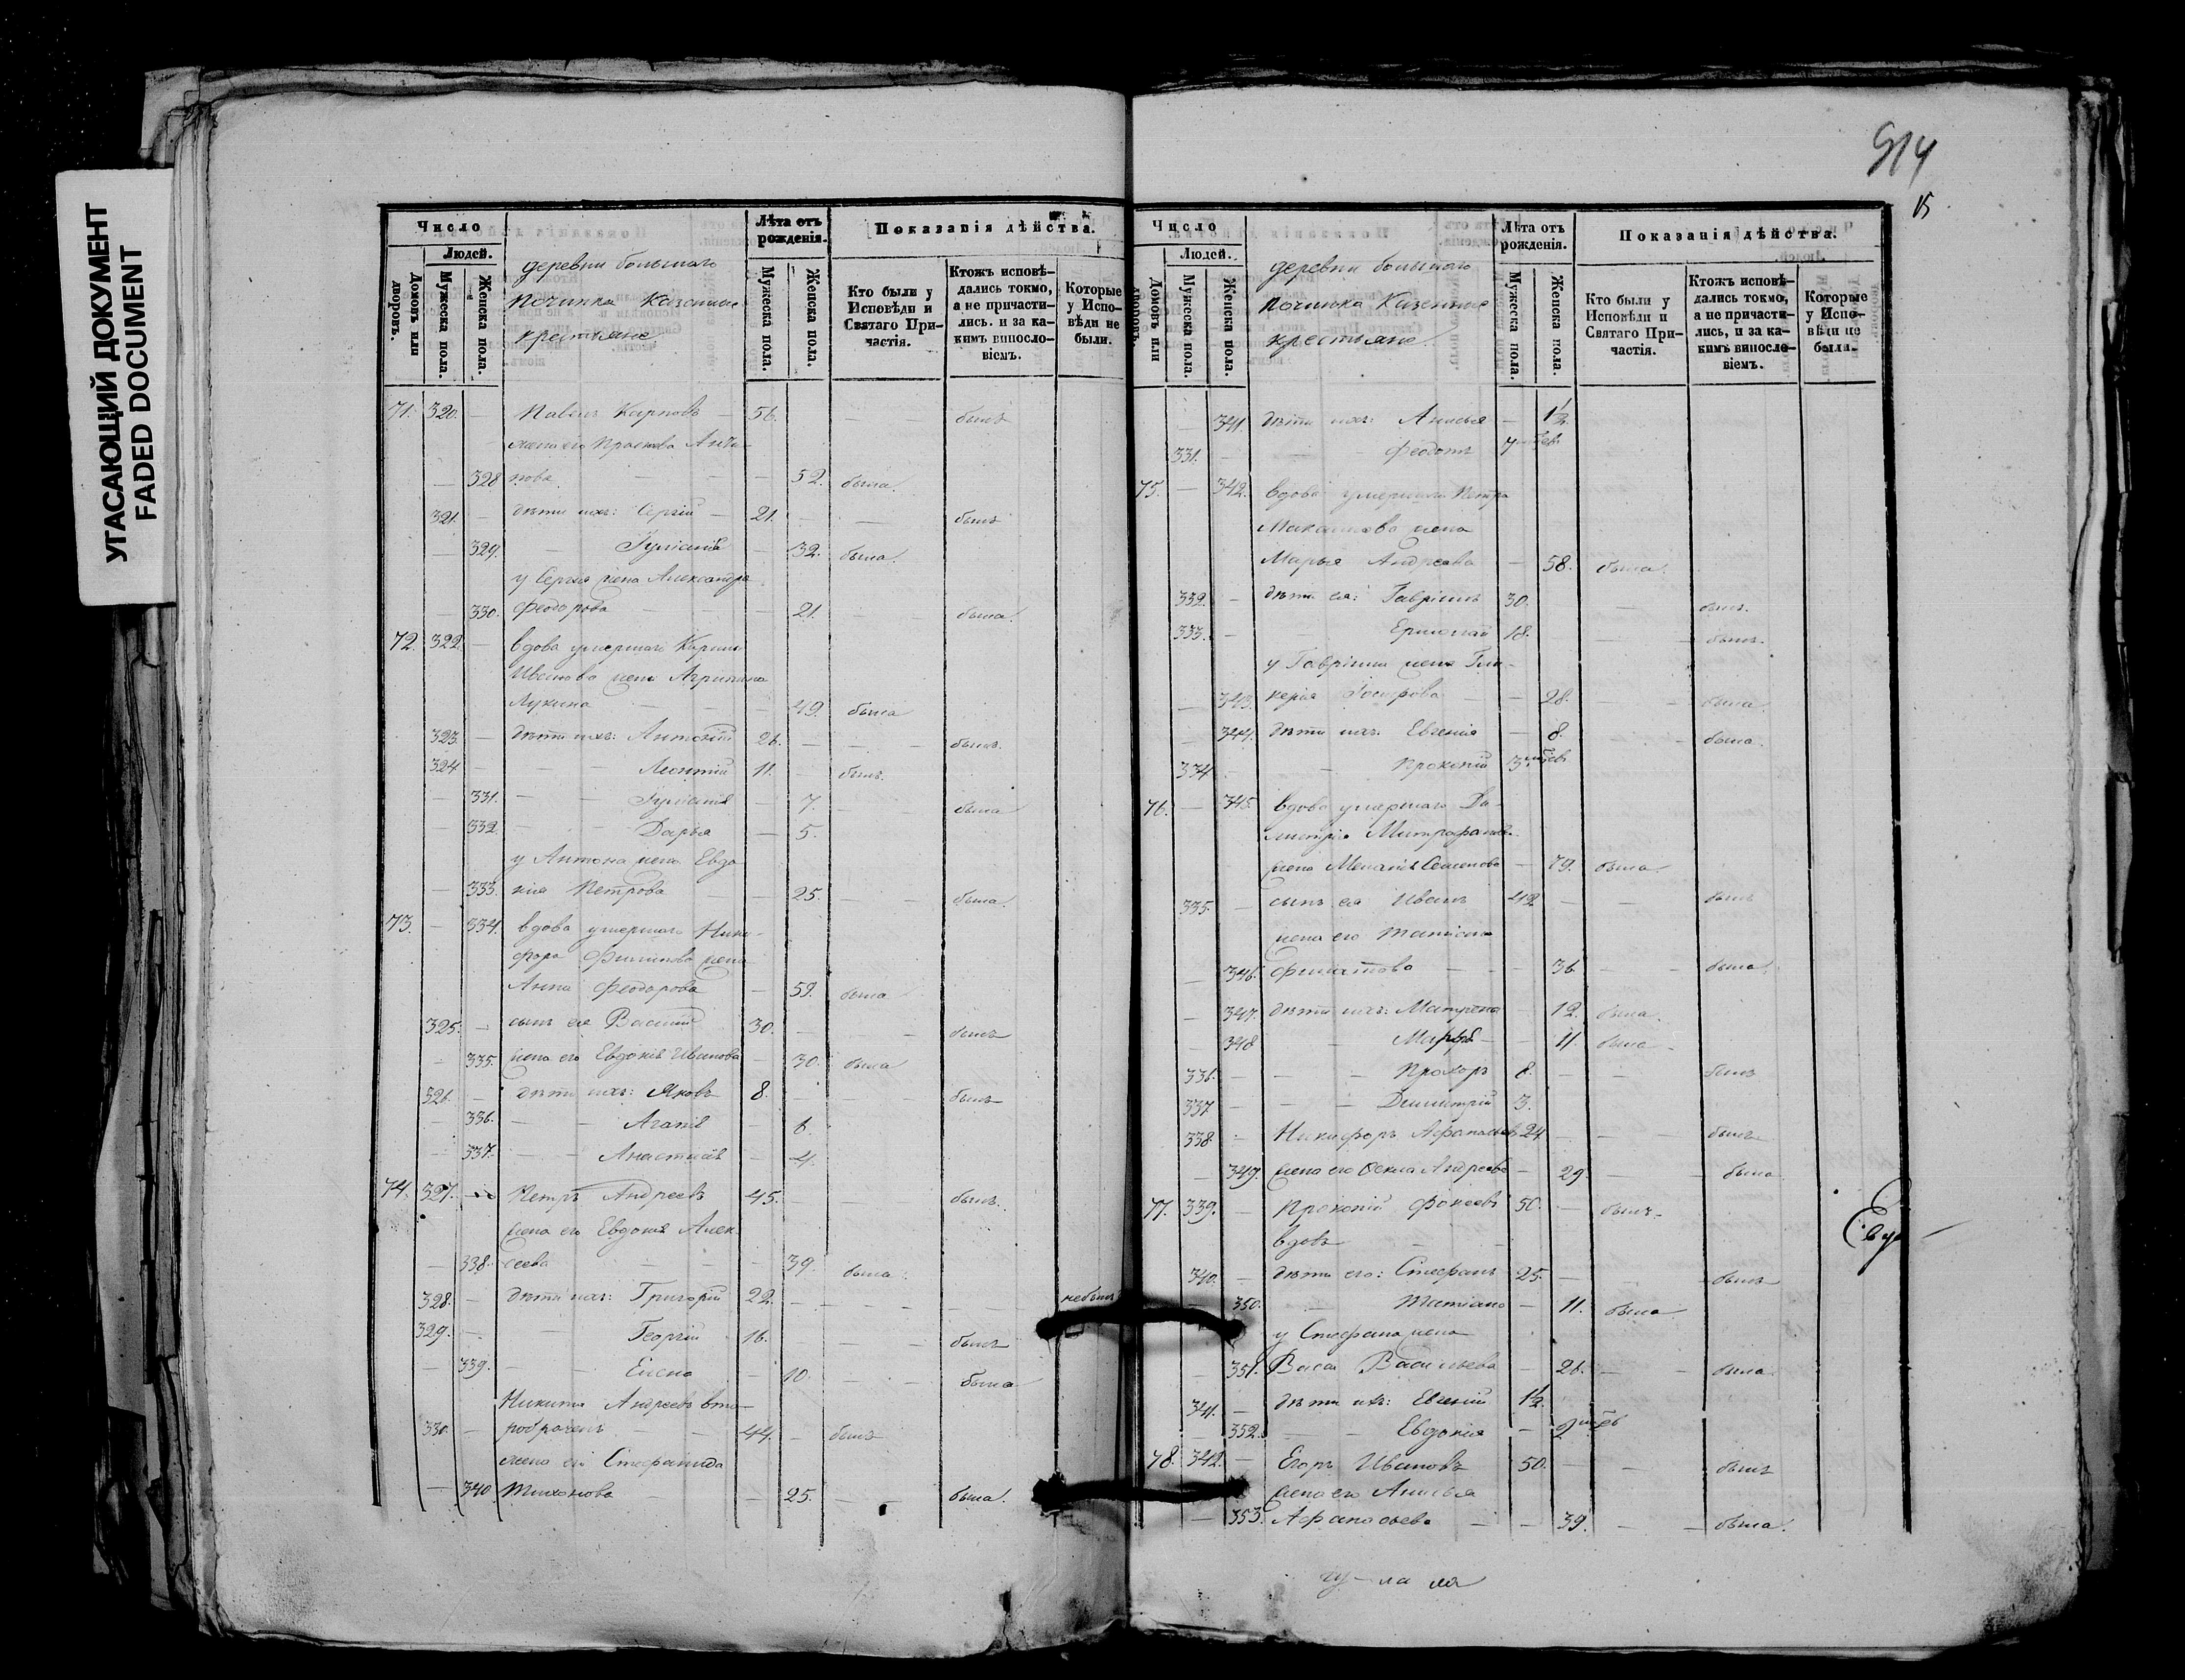 УГАСАЮЩИЙ ДОКУМЕНТ
FADED DOCUMENT
914
15
Число
Людей.
Домовъ или дворовъ.
Мужеска пола.
Женска пола.
деревни большаго
починка Казенные
крестьяне
Лѣта отъ рожденія.
Мужеска пола.
Женска пола.
Показанія дѣйства.
Кто были у Исповѣди и Святаго Причастія.
Ктожъ исповѣдались токмо, а не причастились. и за какимъ винословіемъ.
Которые у Исповѣди не были.
71. 320. — Павелъ Карповъ — 56. — былъ
жена его Прасковья
328 52. была.
321. — дѣти ихъ: Сергій — 21. — былъ
— 329. — Іуліанія — 32. была.
у Сергія жена Александра
— 330. Феодорова — 21. — была.
72. 322. — вдова умершаго Карпа
Иванова жена Агрипина
Лукина — 49. была
323. — дѣти ихъ: Антоній 26. — былъ
324 — Леонтій 11. — былъ.
— 331. — Іуліанія — 7. — была
— 332. — Дарья — 5.
у Антона жена Евдо
— 333. кія Петрова — 25. — была.
73. — 334. вдова умершаго Ники-
фора Филипова жена
Анна Феодорова — 59. была
325. — сынъ ея Василій 30. — былъ
— 335. жена его Евдокія Иванова — 30. была
326. — дѣти ихъ: Яковъ 8. — былъ
— 336. — Агапія — 6.
— 337. — Анастасія — 4.
74. 327. — Петръ Андреевъ 45. — былъ.
жена его Евдокія Алек
— 338. сеева — 39. была.
328. — дѣти ихъ: Григорій 22. — небылъ
329. — Георгій 16. — былъ
— 339. — Елена — 10. — была
Никита Андреевъ вто-
330. — робрачнъ — 44. — былъ
жена его Стефанида
— 340. Тихонова — 25. — была.
Число
Людей.
Домовъ или дворовъ.
Мужеска пола.
Женска пола.
деревни большаго
починка Казенные
крестьяне.
Лѣта отъ рожденія.
Мужеска пола.
Женска пола.
Показанія дѣйства.
Кто были у Исповѣди и Святаго Причастія.
Ктожъ исповѣдались токмо, а не причастились, и за какимъ винословіемъ.
Которые у Исповѣди не были.
— 341. дѣти ихъ: Анисья — 1½.
331. — Феодотъ 7
75. — 342. вдова умершаго Петра
жена
Марья Андреева — 58. была.
332. — дѣти ея: Гавріилъ 30. — былъ.
333. — Ермолай 18. — былъ.
у Гавріила жена Гли-
— 343. керія — 28. — была.
— 344. дѣти ихъ: Евгенія — 8. — была.
334 — Прокопій 3
76. — 345. вдова умершаго Ди-
митрія Митрофанова
жена Меланія Семенова — 79. была.
335. — сынъ ея Иванъ 42 — былъ
жена его Татіана
— 346. Филатова — 36 — была.
— 347. дѣти ихъ: Матрена — 12. была.
— 348 — 11. была
336. — Прохоръ 8. — былъ
337 — Димитрій 3.
338. — Никифоръ Афанасьевъ 24. — былъ
— 349. жена его Фекла Андреева — 29. — была
77. 339. — Прокопій Фокеевъ 50. — былъ.
вдовъ
340. — дѣти его: Стефанъ 25. — былъ
350. — Татіана — 11. была
у Стефана жена
— 351. Васса Васильева — 26. — была.
341. — дѣти ихъ: Евгеній 1½.
— 352. — Евдокія — 2
78. 342. — Егоръ Ивановъ 50. — былъ
жена его Анисья
— 353. Афанасьева — 39. — была.